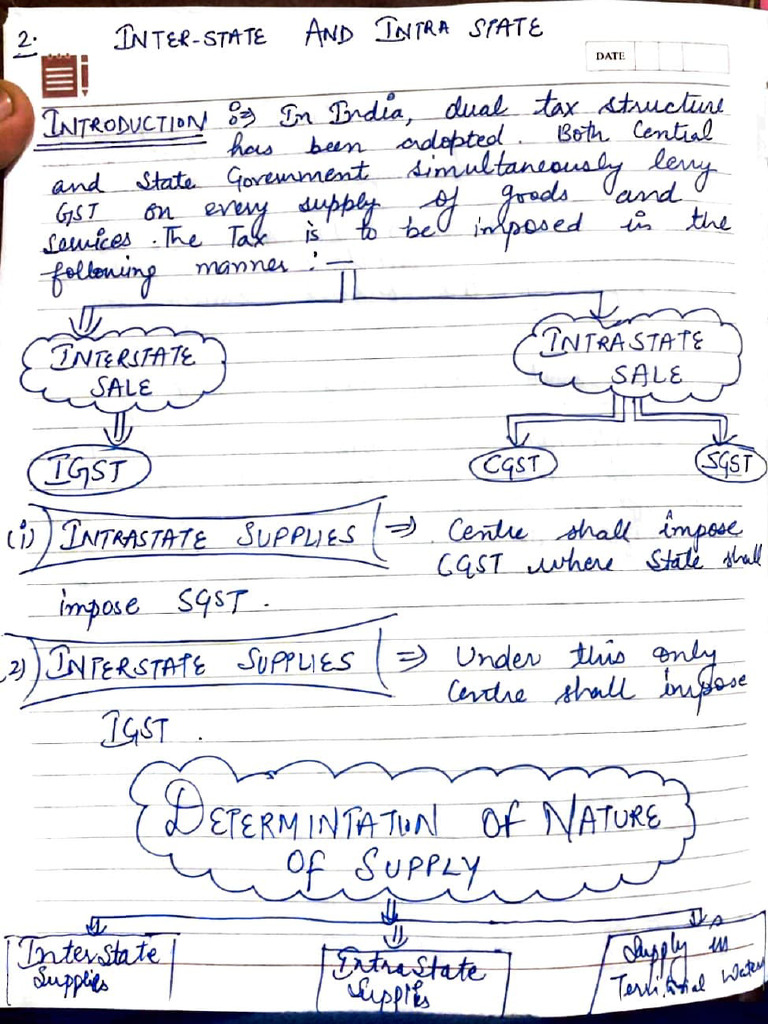 2. INTER-STATE AND INTRA STATE
DATE
INTRODUCTION :⇒ In India, dual tax structure
has been adopted. Both Central
and State Government simultaneously levy
GST on every supply of goods and
services. The Tax is to be imposed in the
following manner :—
INTERSTATE
SALE
INTRASTATE
SALE
IGST
CGST
SGST
(i) INTRASTATE SUPPLIES ⇒ Centre shall impose
CGST where State shall
impose SGST.
2) INTERSTATE SUPPLIES ⇒ Under this only
Centre shall impose
IGST.
DETERMINTATION OF NATURE
OF SUPPLY
InterState
Supplies
IntraState
Supplies
Supply in
Territorial Water